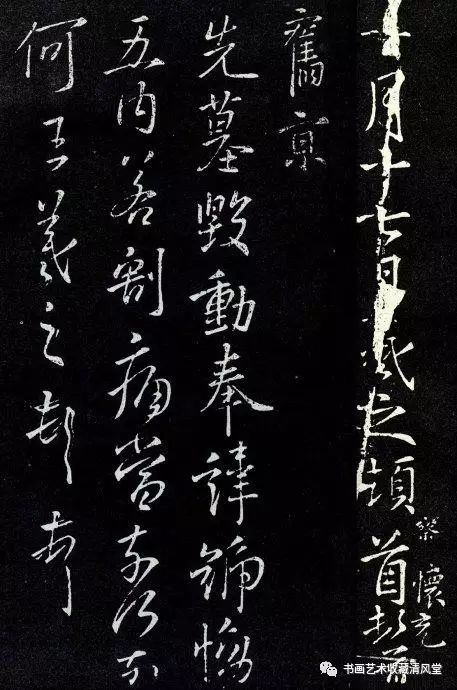 月十七日羲之頓首頓首
察
懷充
舊京
先墓毀動奉諱號惋
五內若割痛當奈何奈
何王羲之頓首
书画艺术收藏清风堂